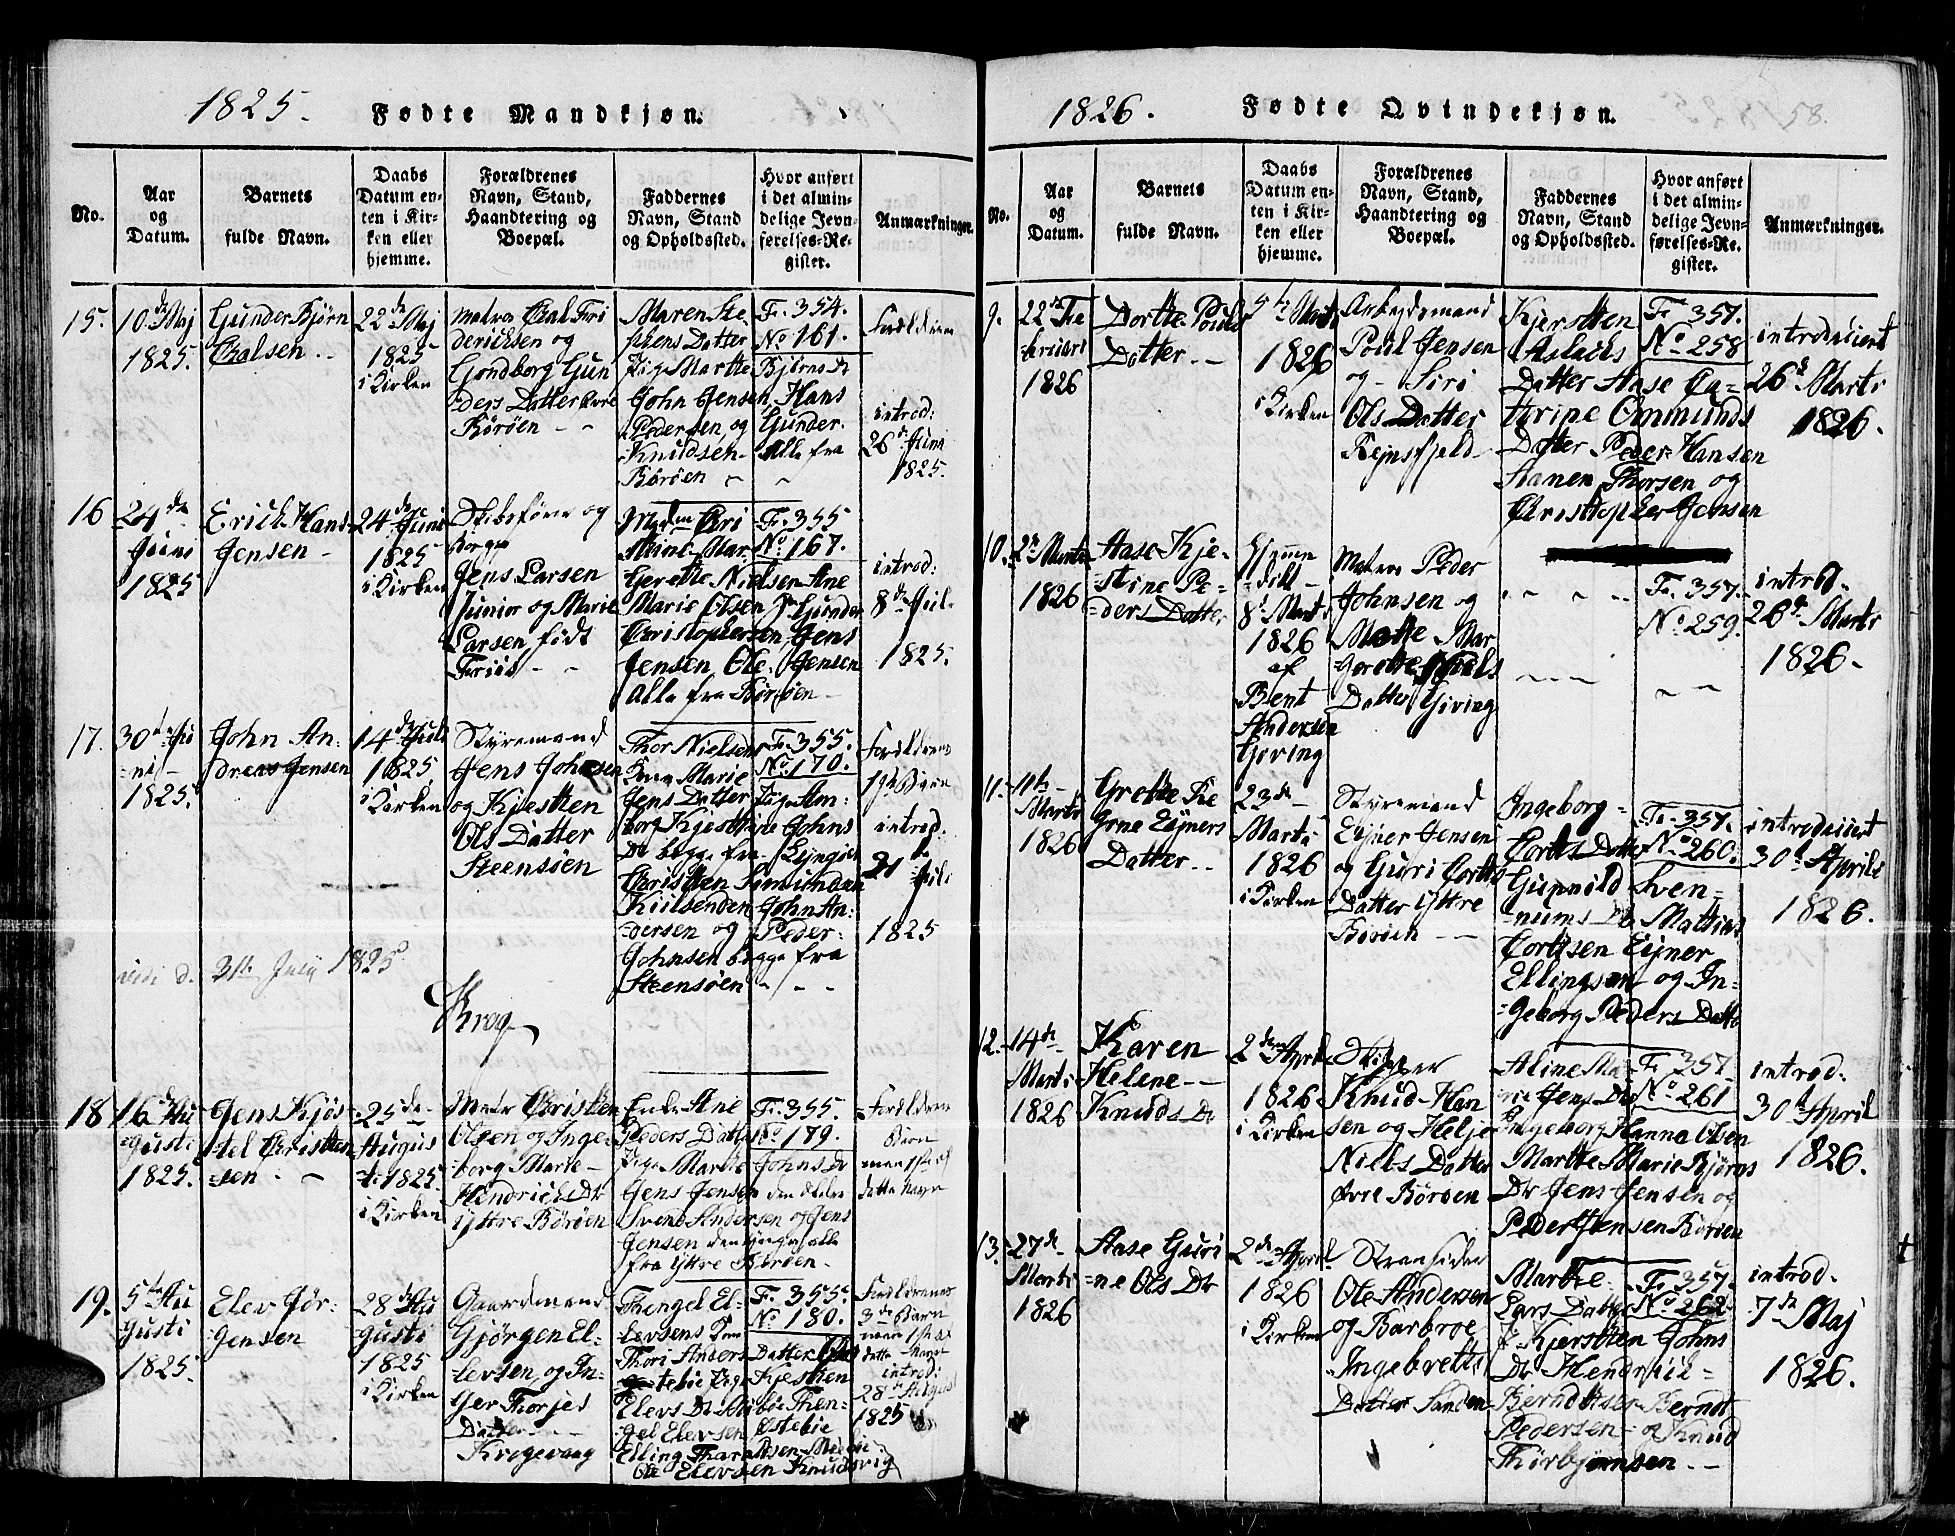 1825.
Fødte Mandkjøn.
No.
Aar
og
Datum.
Barnets
fulde Navn.
Daabs
Datum en-
ten i Kir-
ken eller
hjemme.
Forældrenes
Navn, Stand,
Haandtering og
Boepæl.
Faddernes
Navn, Stand
og Opholdssted.
Hvor anført
i det almin-
delige Jevn-
førelses-Re-
gister.
Anmærkninger.
15.
10de Maj
1825.
Gunder Bjørn
Oalsen
22de Maj
1825
i Kirken
Matros Oal Fri
dericksen og
Gondborg Gun
ders Datter
Børøen
Maren Ste-
phens Datter
Pige Marthe Bjørns Dr
John Jensen, Hans
Pedersen, og Gunder
Knudsen Alle fra
Børøen
Fr. 354.
No 161.
Forældrene
introd:
26de Juni
1825.
16
24de
Juni
1825
Erick Hans
Jensen
24de Juni
1825
i Kirken
Skibsfører og
Borger
Jens Larsen
Junior og Marie
Larsen født
Friis
Gerethe Nielsen Ane
Marie Olsen Jr Gunder
Christophersen, Jens
Jensen Ole Jensen
Alle fra Børøen
Fr. 355
No 167.
introd:
8de Juli
1825.
17.
30te Ju
ni
1825.
John An-
dreas Jensen
14de Juli
1825
i Kirken
Styremand
Jens Johnsen
og Kjestten
Ols Datter
Steensøen
Thor Nielsens
Kone Marie
Jens Datter
borg Kjesttine Johns
Dr begge fra Lyngør
Christten Simundsen
Kiilsenden John An-
dersen og Peder
Johnsen begge fra
Steensøen
Fr. 355.
No 170.
Forældrenes
1ste Barn
introd:
21 Juli
1825
vidi d. 31te July 1825
Krog
18
16de Au
gusti
1825.
Jens Kjøs
tel Christten
sen
25de
Augus
ti 1825
i Kirken
Matr Christten
Olsen og Inge
borg Marie
Hendrichs Dr
Yttre Børøen
Enke Ane
Peders Datter
Pige Marthe Johns Dr
Jens Jensen den Eldre
Svend Andersen og Jens
Jensen den yngre alle
fra Yttre Børøen
Fr. 355.
No 179.
Forældrene
Barn
men 1ste af
dette Navn
19.
5te Au
gusti
1825.
Elev Jør-
gensen
28de Au
gusti
1825
i Kirken
Gaardmand
Gjørgen El-
levsen, og In-
ger Thorjes
Datter
Krogevaag
Thengel El-
levsens Kone
Thori Anders Datter
Pige Kjestten
Elevs Dr
gel Elevsen Østebøe
Ole Elevsen Knudsvig
Fr. 355
No. 180.
Forældrenes
3de Barn
men 1ste af
dette Navn
introd:
28de August
1825
1826.
Fødte Qvindekjøn.
58.
No.
Aar
og
Datum.
Barnets
fulde Navn.
Daabs
Datum en-
ten i Kir-
ken eller
hjemme.
Forældrenes
Navn, Stand,
Haandtering og
Boepæl.
Faddernes
Navn, Stand
og Opholdssted.
Hvor anført
i det almin-
delige Jevn-
førelses-Re-
gister.
Anmærkninger.
9.
22de Fe
bruari
1826
Dorthe Pouls
Datter
5te Marti
1826
i Kirken
Arbeydsmand
Poul Jensen
og Siri
Ols Datter
Rejnsfjeld
Kjerstten
Aslacks
Datter Aase Ca-
thrine Ommunds
Datter Peder Hansen
Aanen Thorsen og
Christopher Jensen
Fr. 357.
No 258
introduciert
26de Marti
1826.
10.
2de Marti
1826
Aase Kje-
stine Pe-
ders Datter
Hjemme
døbt
8de Marti
1826
af
Bent
Andersen
Gjeving
Matros Peder
Johnsen og
Mar
Datter Gjeving
Fr. 357.
No. 259.
introd.
26de Marti
1826.
11.
11te
Marti
1826
Grethe Re
gine Ejners
Datter
23de
Marti
1826
i Kirken
Styremand
Ejner Jensen
og Guri Corts
Datter Yttre
Børøen
Ingeborg
Corts Datter
Gunnild Sven-
nums Dr Mathias
Cortsen Ejner
Ellingsen og In-
geborg Peders Datter
Fr. 357.
No. 260.
introduciert
30te Aprili
1826.
12.
14de
Marti
1826
Karen
Helene
Knuds Dr
2den April
1826
i Kirken
Skipper
Knud Han
sen og Helje
Niels Datter
Øvre Børøen
Aline Ma
rie Jens Dr
Ingeborg Hanna Olsen
Marthe Marie Bjørns
Dr Jens Jensen og
Peder Jensen Børøen
Fr. 357
No 261
introd:
30te April
1826.
13.
27de
Marti
1826
Aase Guri
ne Ols Dr
2den April
1826
i Kirken
Strandsidder
Ole Andersen
og Barbroe
Ingebretts
Datter Sanden
Marthe
Lars Datter
P. Kjerstten Johns
Dr Hendrick
Berndtsen Berndt
Pedersen og Knud
Thorbjørnsen
Fr. 357.
No 262
introd.
7de Maj
1826.